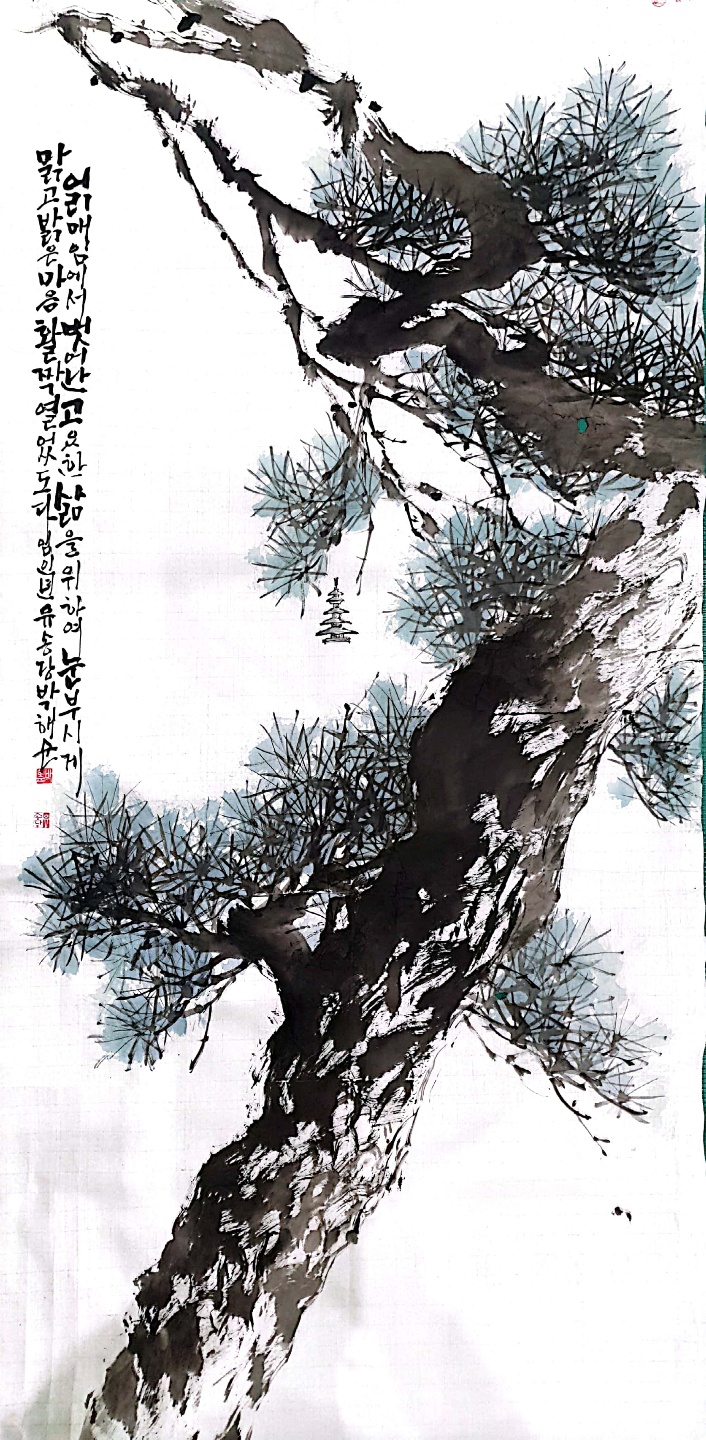 얽매임에서 벗어나 고요한 삶을 위하여 눈부시게
맑고 밝은 마음 활짝 열었도다 임인년 유송당 박해